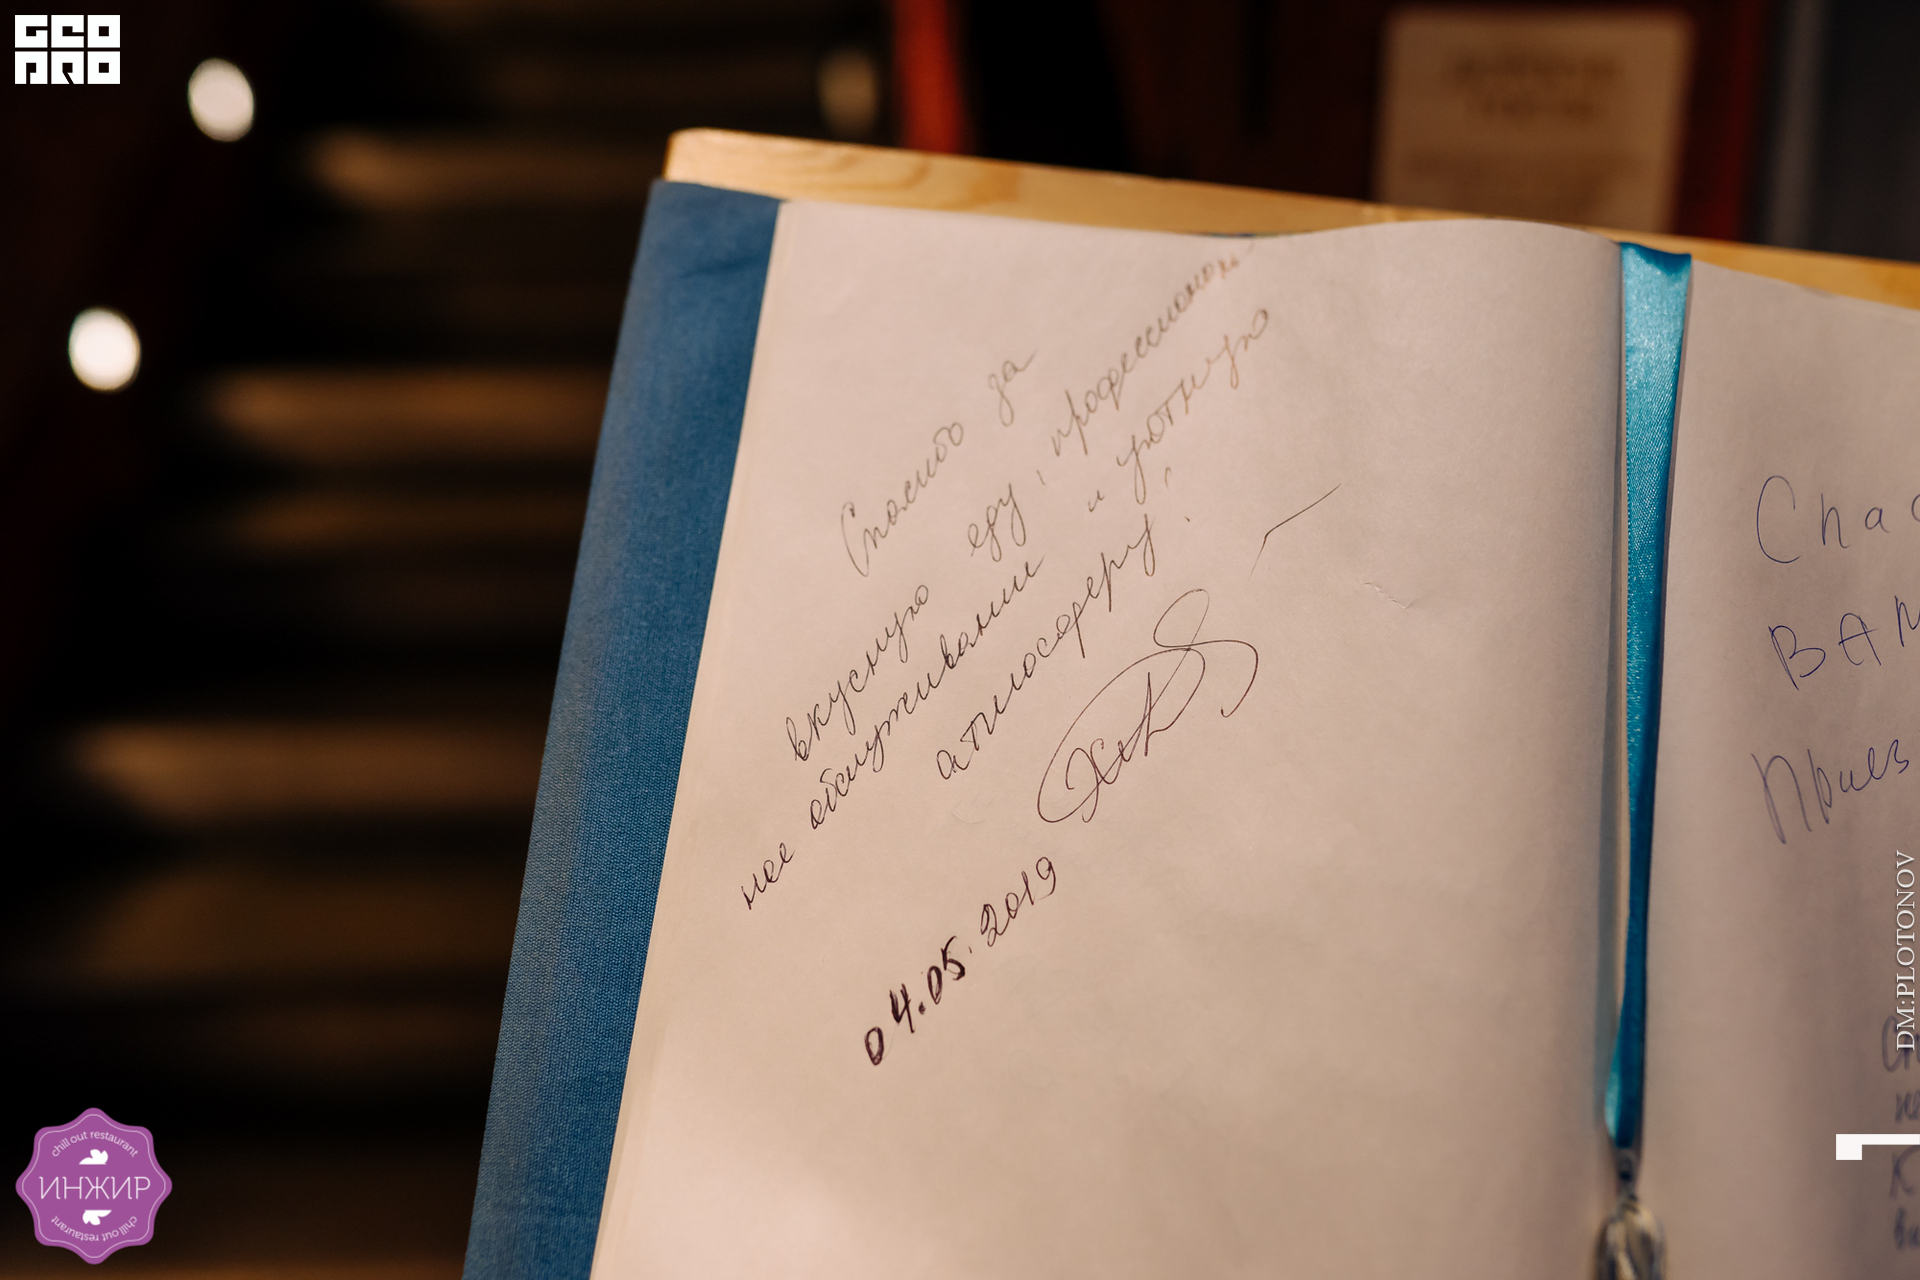 GEO
PRO
Спасибо за
вкусную еду, профессиональ
ное обслуживании и уютную
атмосферу!
04.05.2019
Спас
ВАМ
Приез
DM:PLOTONOV
chill out restaurant
ИНЖИР
chill out restaurant